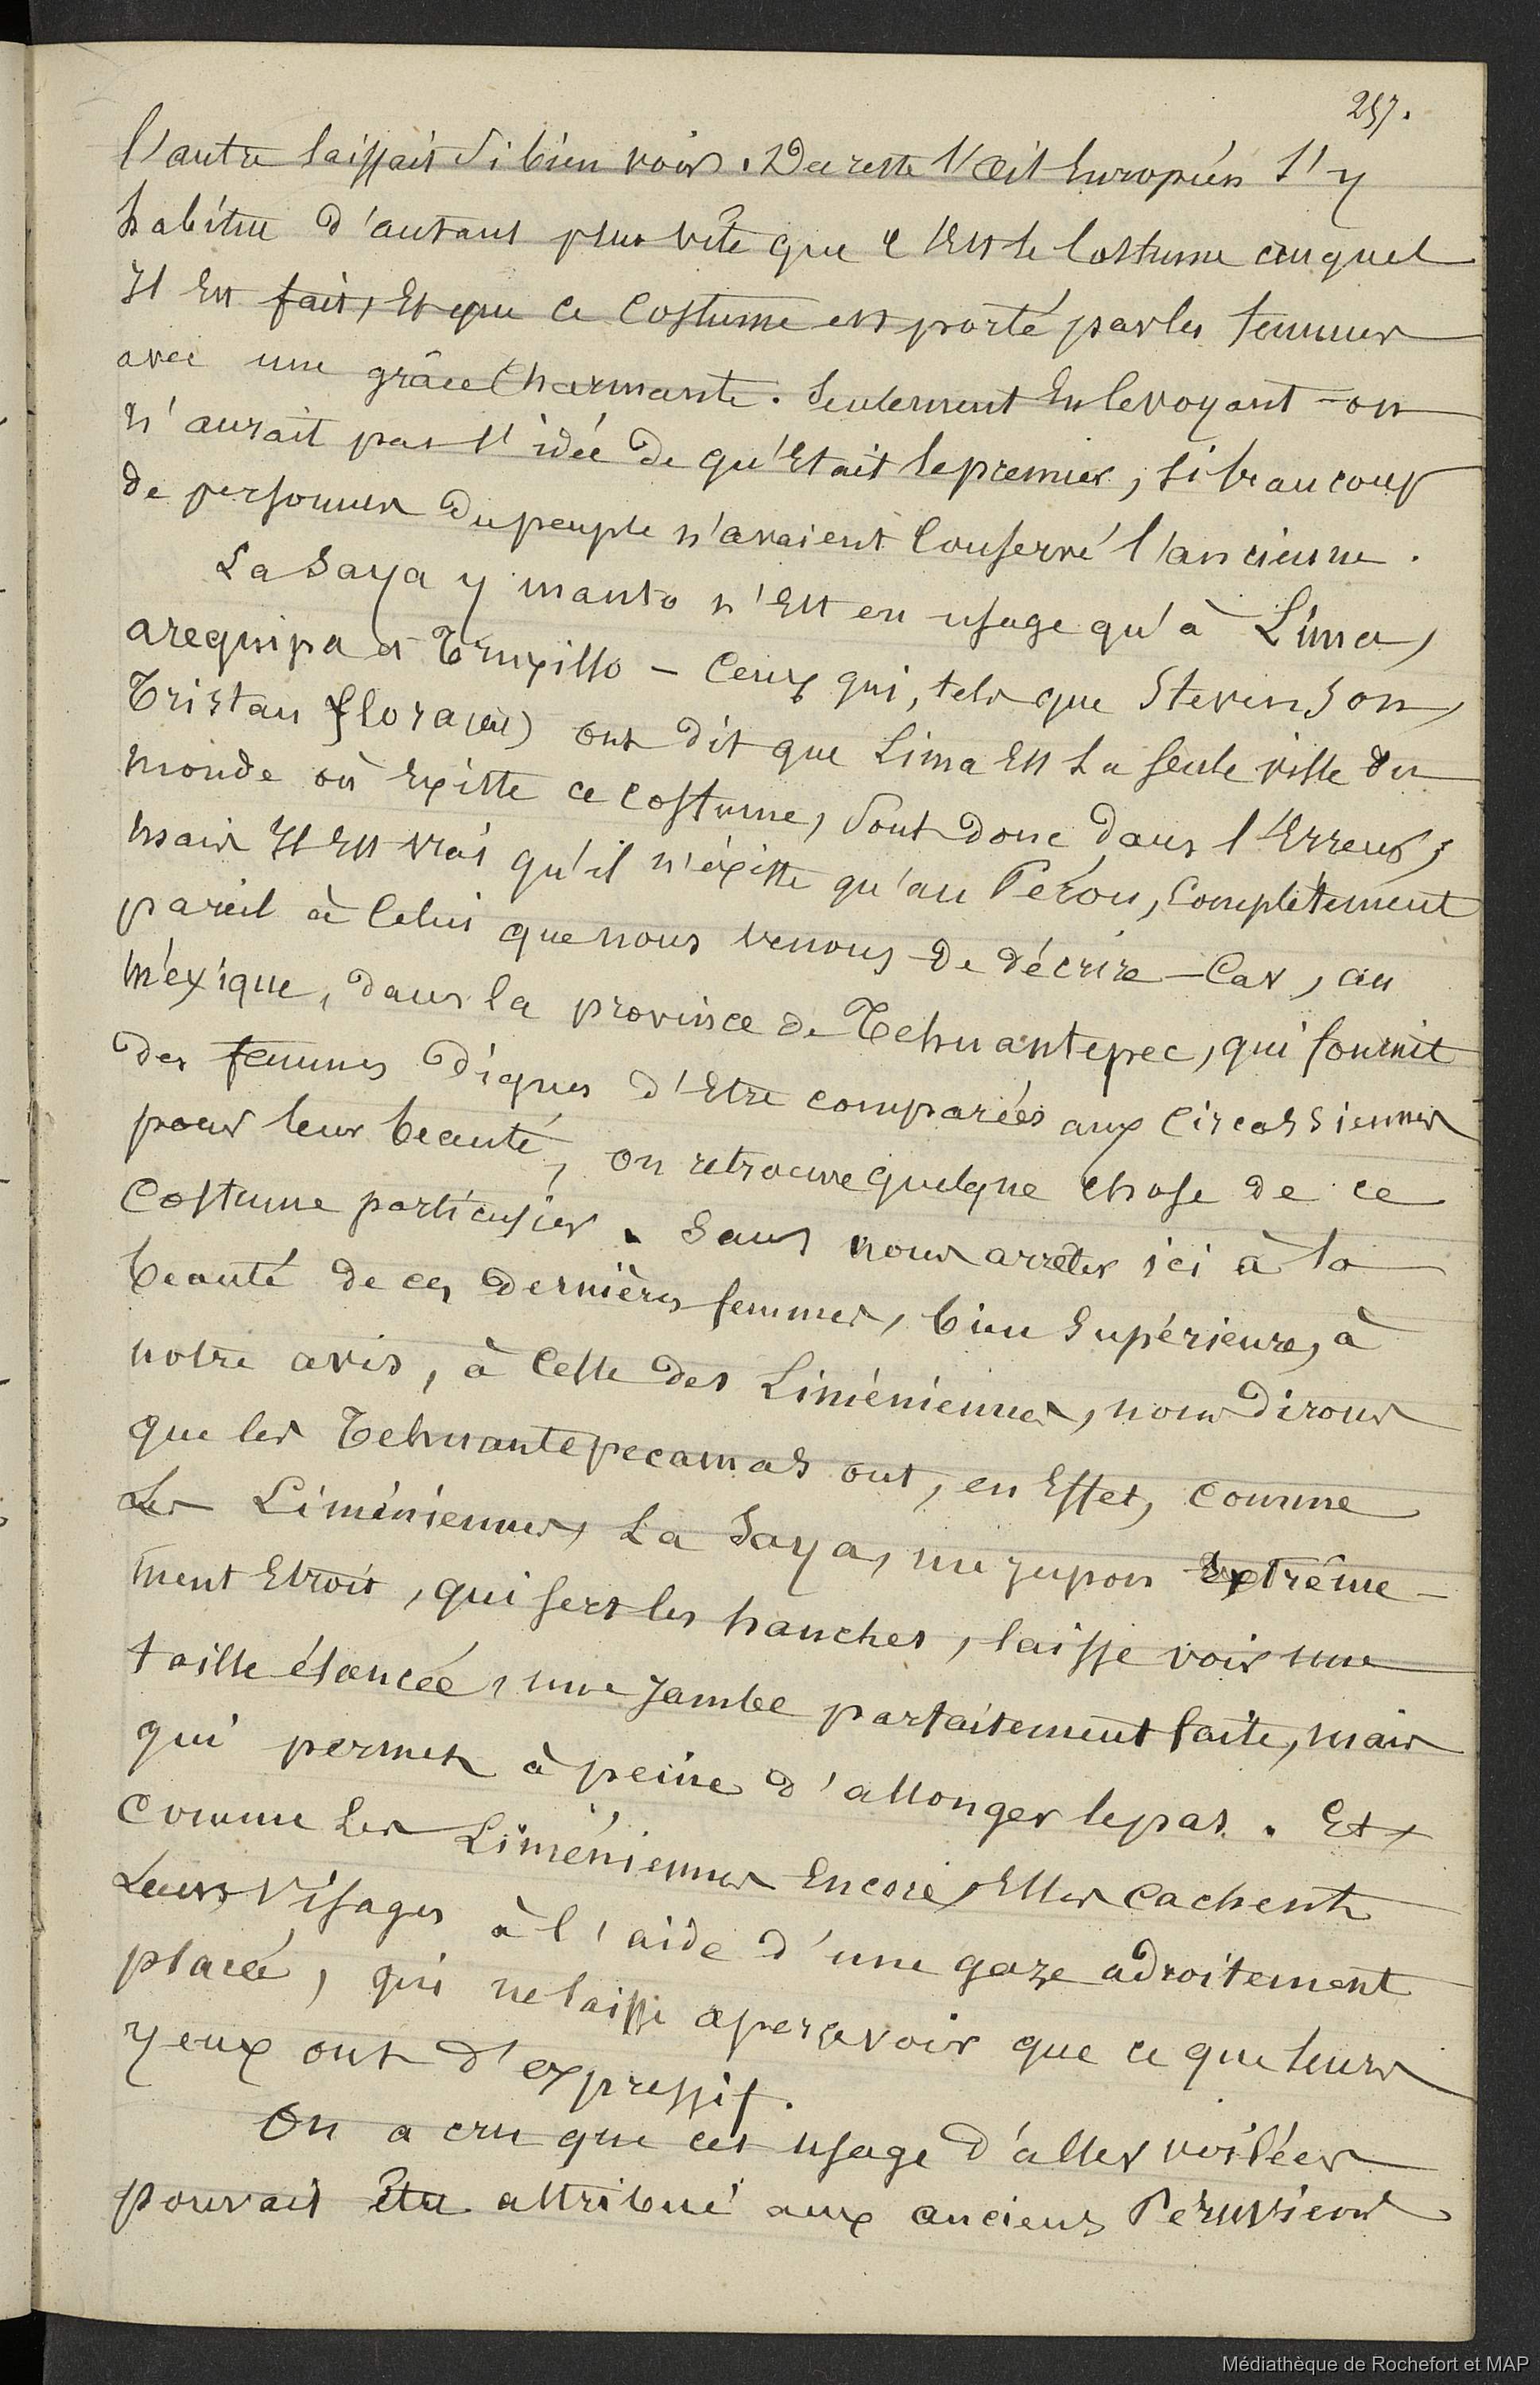 257.
l'autre laissait si bien voir. Du reste l'œil Européen s'y
habitue d'autant plus vite que c'Est le Costume auquel
Il Est fait, Et que ce Costume est porté par les femmes
avec une grâce Charmante. Seulement En le voyant on
n'aurait pas l'idée de qu'Etait le premier, si beaucoup
de personnes du peuple n'avaient Conservé l'ancienne.
La Saya y manto n'Est en usage qu'à Lima,
arequipa et Truxillo – Ceux qui, tels que Stevenson,
Tristan flora ont dit que Lima Est La seule ville du
monde où Existe ce Costume, sont donc dans l'Erreur;
mais Il Est vrai qu'il n'éxiste qu'au Pérou, Complétement
pareil à Celui que nous venons de décrire – Car, au
méxique, dans la province de Tehuantepec, qui fournit
des femmes dignes d'Etre comparées aux Circassiennes
pour leur beauté, on retrouve quelque chose de ce
Costume particulier. Sans nous arrêter ici à la
beauté de ces dernières femmes, bien Supérieure, à
notre avis, à Celle des Liméniennes, nous dirons
que les Tehuantepecamas ont, en Effet, Comme
Les Liméniennes, La Saya, un jupon Extrême-
ment Etroit, qui sert les hanches, laisse voir une
taille élancée, une Jambe parfaitement faite, mais
qui permet à peine d'allonger le pas. Et,
Comme Les Liméniennes Encore, Elles Cachent
Leurs Visages à l'aide d'une gaze adroitement
placée, qui ne laisse apercevoir que ce que leurs
yeux ont d'expressif.
On a cru que cet usage d'aller voilées
pouvait être attribué aux anciens Péruviens
Médiathèque de Rochefort et MAP